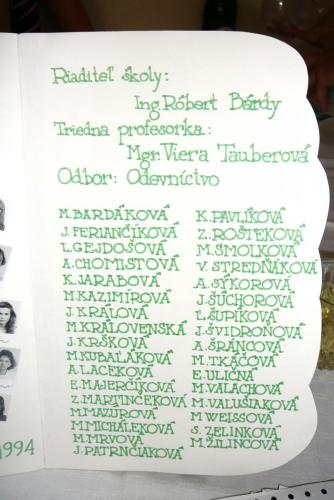 Riaditeľ školy:
Ing Róbert Bárdy
Triedna profesorka:
Mgr. Viera Tauberová
Odbor: Odevníctvo
M.BARDÁKOVÁ
J.FERIANČÍKOVÁ
L.GEJDOŠOVÁ
A.CHOMISTOVÁ
K.JARABOVÁ
M.KAZIMÍROVÁ
J.KRÁLOVÁ
M.KRÁLOVENSKÁ
J.KRŠKOVÁ
M.KUBALÁKOVÁ
A.LACEKOVÁ
E.MAJERČÍKOVÁ
Z.MARTINČEKOVÁ
M.MAZÚROVÁ
M.MICHÁLEKOVÁ
M.MRVOVÁ
J.PATRNČIAKOVÁ
K.PAVLÍKOVÁ
Z.ROŠTEKOVÁ
M.SMOLKOVÁ
V.STREDŇÁKOVÁ
A.SÝKOROVÁ
J.ŠUCHOROVÁ
L.ŠUPÍKOVÁ
J.ŠVIDROŇOVÁ
A.ŠRANCOVÁ
M.TKÁČOVÁ
E.ULIČNÁ
M.VALACHOVÁ
M.VALUŠIAKOVÁ
M.WEISSOVÁ
S.ZELINKOVÁ
M.ŽILINCOVÁ
1994